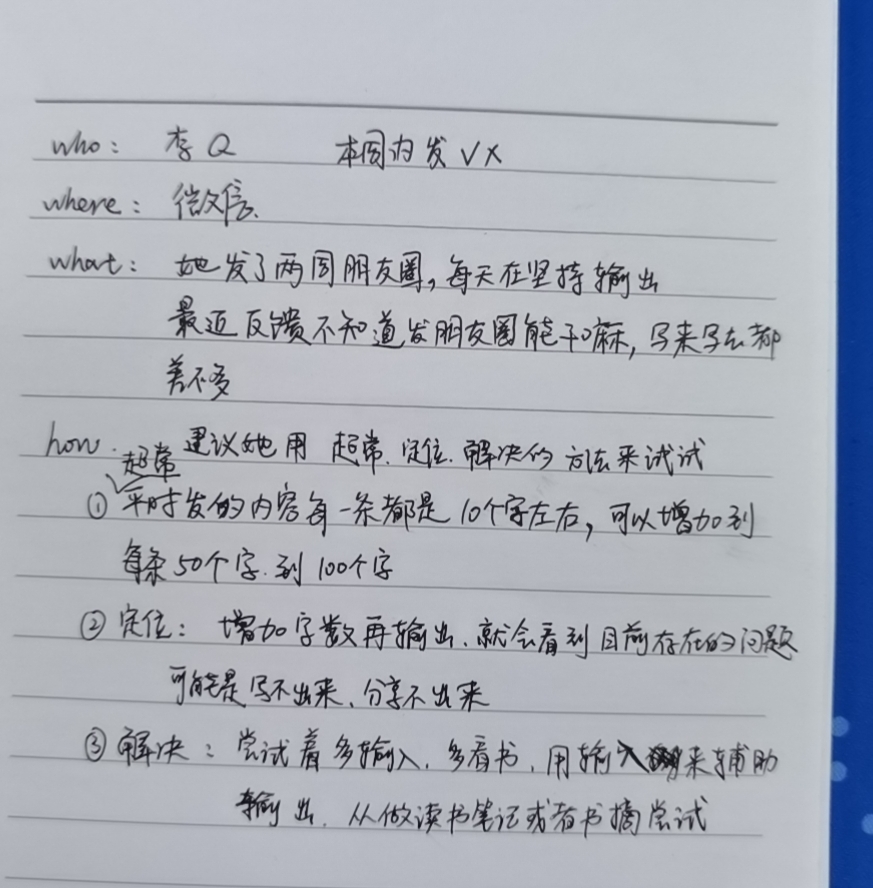 who: 李Q 本周内发VX
where: 微信.
what: 她发了两周朋友圈,每天在坚持输出
最近反馈不知道发朋友圈能干嘛,写来写去都
差不多
how. 建议她用 超常.定位.解决的方法来试试
超常
① 平时发的内容每一条都是10个字左右,可以增加到
每条50个字.到100个字
② 定位: 增加字数再输出.就会看到目前存在的问题
可能是写不出来、分享不出来
③ 解决: 尝试着多输入.多看书.用输入来辅助
输出. 从做读书笔记或者书摘尝试